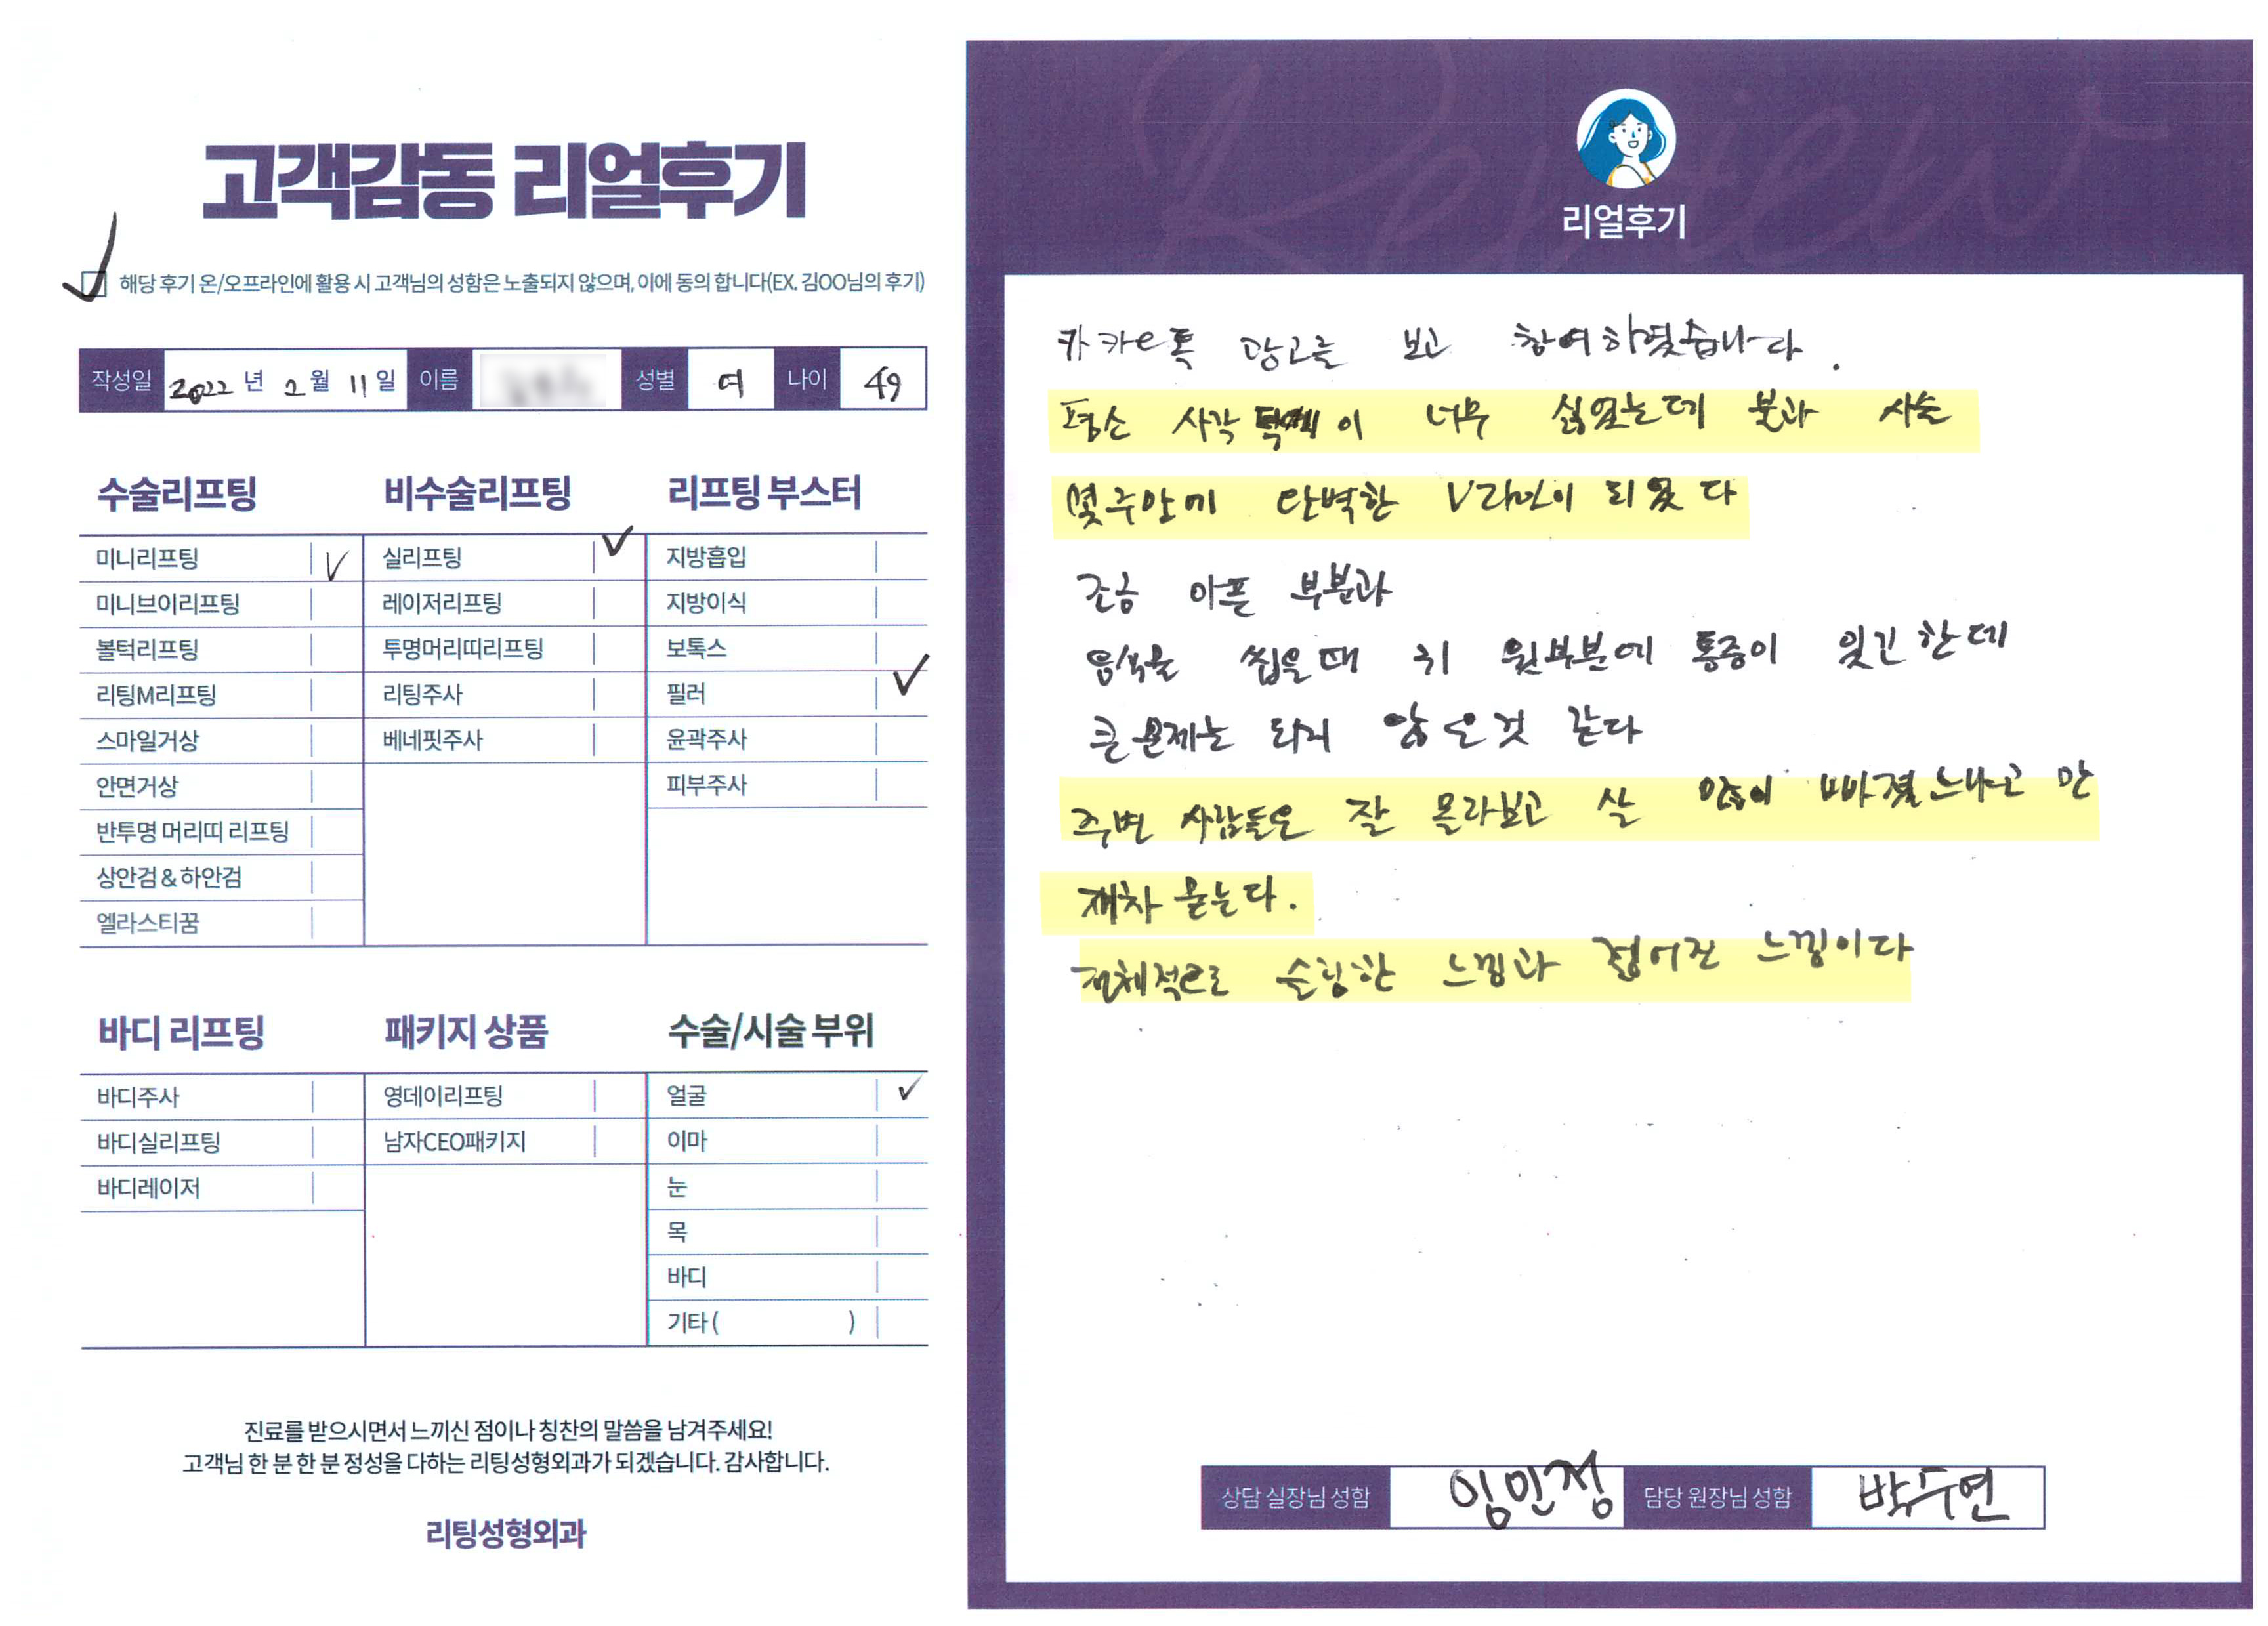 고객감동 리얼후기
해당 후기 온/오프라인에 활용 시 고객님의 성함은 노출되지 않으며, 이에 동의 합니다(EX. 김OO님의 후기)
작성일 2022 년 2 월 11 일 이름 성별 여 나이 49
수술리프팅
미니리프팅 V
미니브이리프팅
볼턱리프팅
리팅M리프팅
스마일거상
안면거상
반투명 머리띠 리프팅
상안검 & 하안검
엘라스티꿈
비수술리프팅
실리프팅 ✓
레이저리프팅
투명머리띠리프팅
리팅주사
베네핏주사
리프팅 부스터
지방흡입
지방이식
보톡스
필러 ✓
윤곽주사
피부주사
바디 리프팅
바디주사
바디실리프팅
바디레이저
패키지 상품
영데이리프팅
남자CEO패키지
수술/시술 부위
얼굴 ✓
이마
눈
목
바디
기타 ( )
진료를 받으시면서 느끼신 점이나 칭찬의 말씀을 남겨주세요!
고객님 한 분 한 분 정성을 다하는 리팅성형외과가 되겠습니다. 감사합니다.
리팅성형외과
Review
리얼후기
카카오톡 광고를 보고 참여하였습니다.
평소 사각 이 너무 싫었는데 불과 시술
몇주안에 완벽한 V라인이 되었다
조금 아픈 부분과
음식을 씹을때 귀 윗부분에 통증이 있긴 한데
큰 문제는 되지 않은것 같다
주변 사람들은 잘 몰라보고 살 많이 빠졌느냐고 만
재차 묻는다.
전체적으로 순해한 느낌과 젊어진 느낌이다
상담 실장님 성함 임민정 담당 원장님 성함 박수연